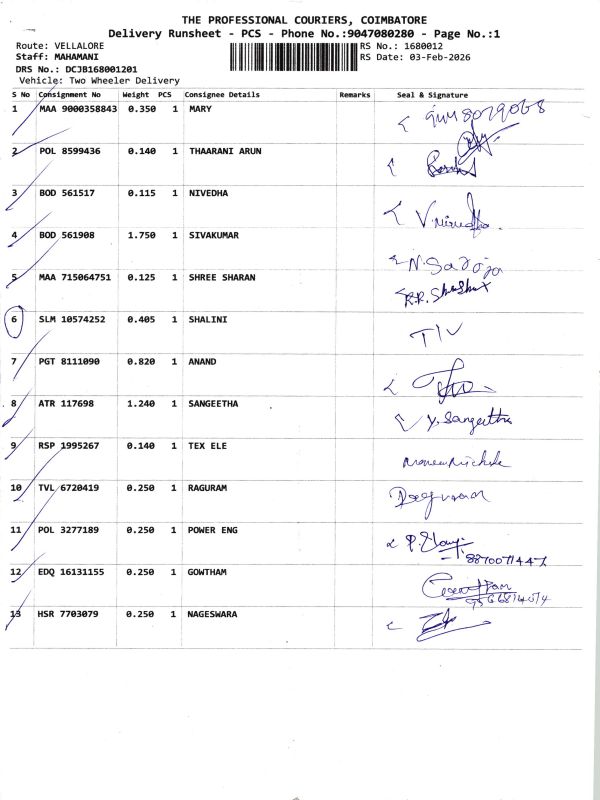 THE PROFESSIONAL COURIERS, COIMBATORE
Delivery Runsheet - PCS - Phone No.:9047080280 - Page No.:1
Route: VELLALORE RS No.: 1680012
Staff: MAHAMANI RS Date: 03-Feb-2026
DRS No.: DCJB168001201
Vehicle: Two Wheeler Delivery
S No Consignment No Weight PCS Consignee Details Remarks Seal & Signature
1 MAA 9000358843 0.350 1 MARY
2 POL 8599436 0.140 1 THAARANI ARUN
3 BOD 561517 0.115 1 NIVEDHA
4 BOD 561908 1.750 1 SIVAKUMAR N. Saroja
5 MAA 715064751 0.125 1 SHREE SHARAN
6 SLM 10574252 0.405 1 SHALINI
7 PGT 8111090 0.820 1 ANAND
8 ATR 117698 1.240 1 SANGEETHA Y. Sangeetha
9 RSP 1995267 0.140 1 TEX ELE
10 TVL 6720419 0.250 1 RAGURAM
11 POL 3277189 0.250 1 POWER ENG
8870071447
12 EDQ 16131155 0.250 1 GOWTHAM
13 HSR 7703079 0.250 1 NAGESWARA